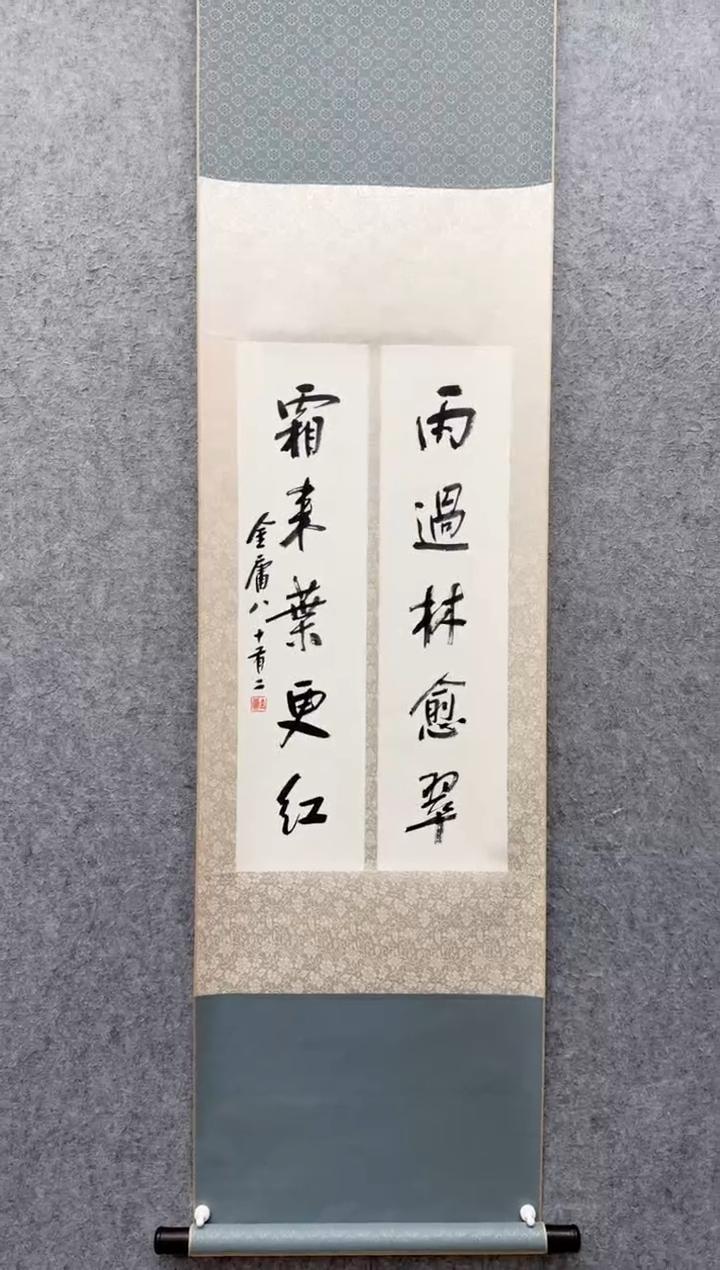 雨過林愈翠
霜来葉更红
金庸八十有二